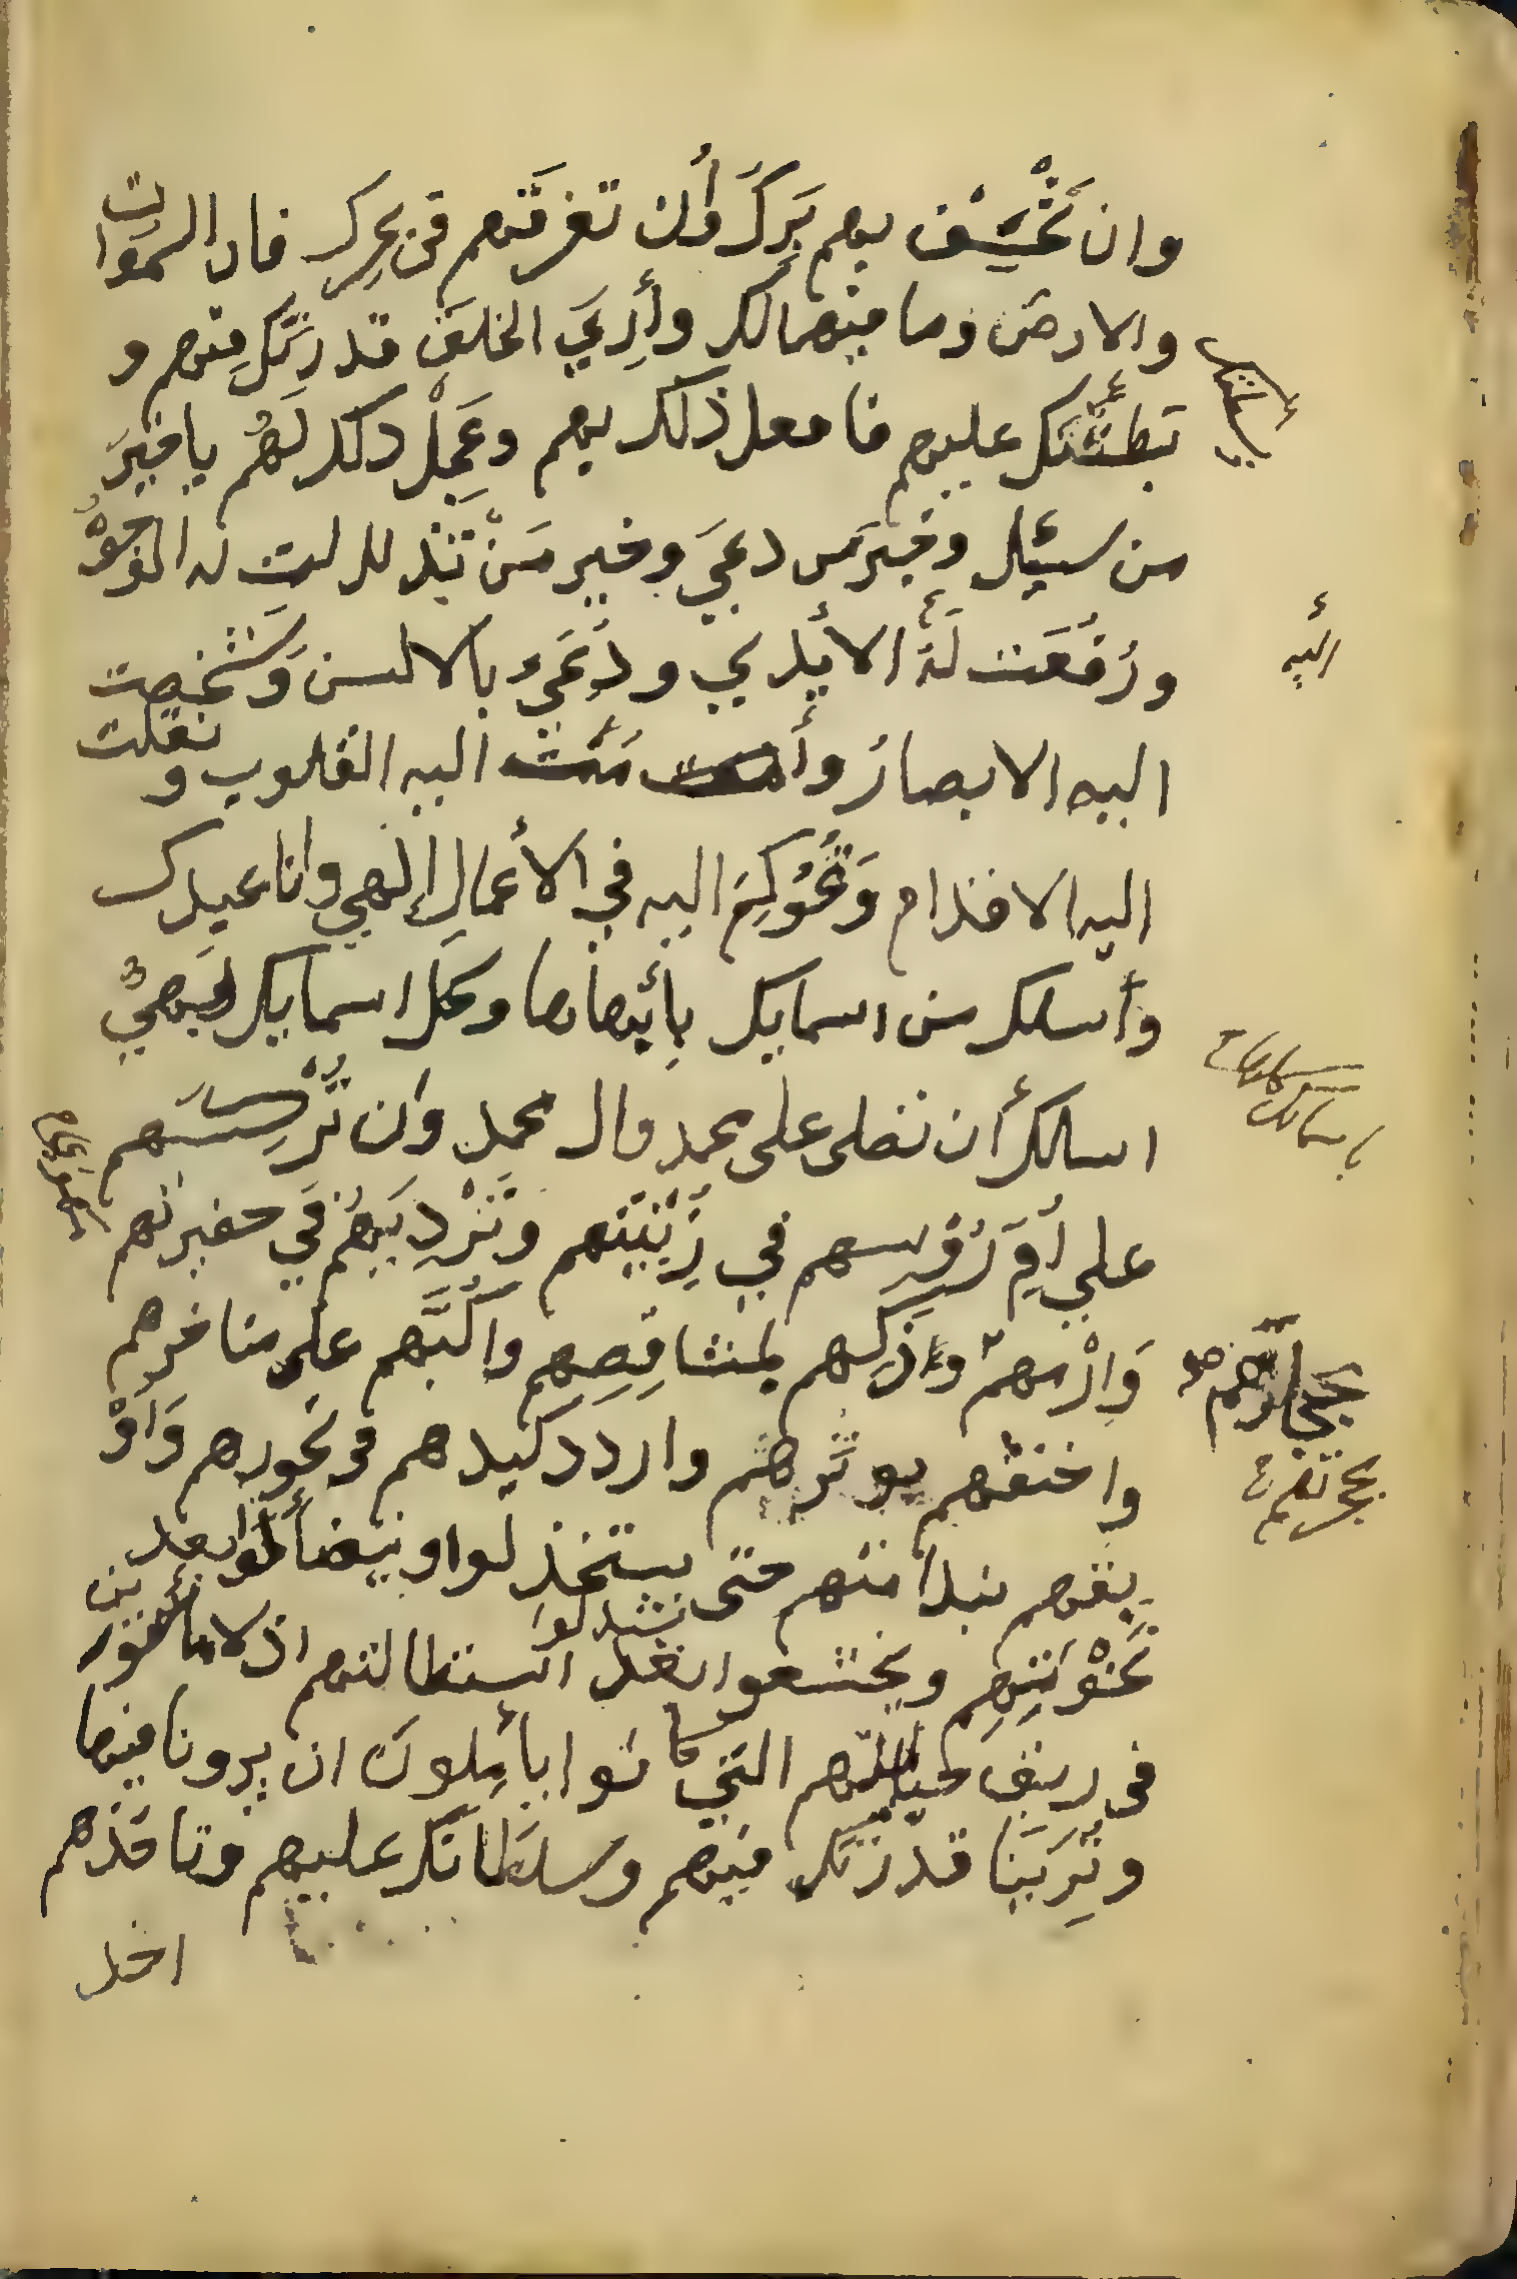 وان تخسف بهم برك وأن تغرقهم في بحرك فان السموات
والارض وما فيهما لك وأري الخلق قدرتك فيهم و
بطشتك عليهم فافعل ذلك بهم وعجل ذلك لهم يا خير
من سئل وخير من دعي وخير من تذللت له الوجوه
ورفعت له الأيدي ودعي بالالسن وشخصت
اليه الابصار وأمت اليه القلوب و نقلت
اليه الاقدام وتحوكم اليه في الأعمال إلهي وانا عبدك
وأسلك من اسمايك بأبهاها وكل اسمايك بهي
اسالك أن تصلى على محمد وال محمد وان تركسهم
علي أم رؤسهم في زبيتهم وترديهم في حفيرتهم
وارمهم وذكهم بمشاقصهم واكبهم على مناخرهم
واخنقهم بوترهم واردد كيدهم في نحورهم واو
بقهم بندامتهم حتى يستخذلوا ويتضألوا بعد
نخوتهم ويخشعوا بعد استطالتهم اذلا مأسورين
في ربق حبائلهم التي كانوا يأملون ان يرونا فيها
وترينا قدرتك فيهم وسلطانك عليهم وتاخذهم
اخذ
اليه
بحجرهم